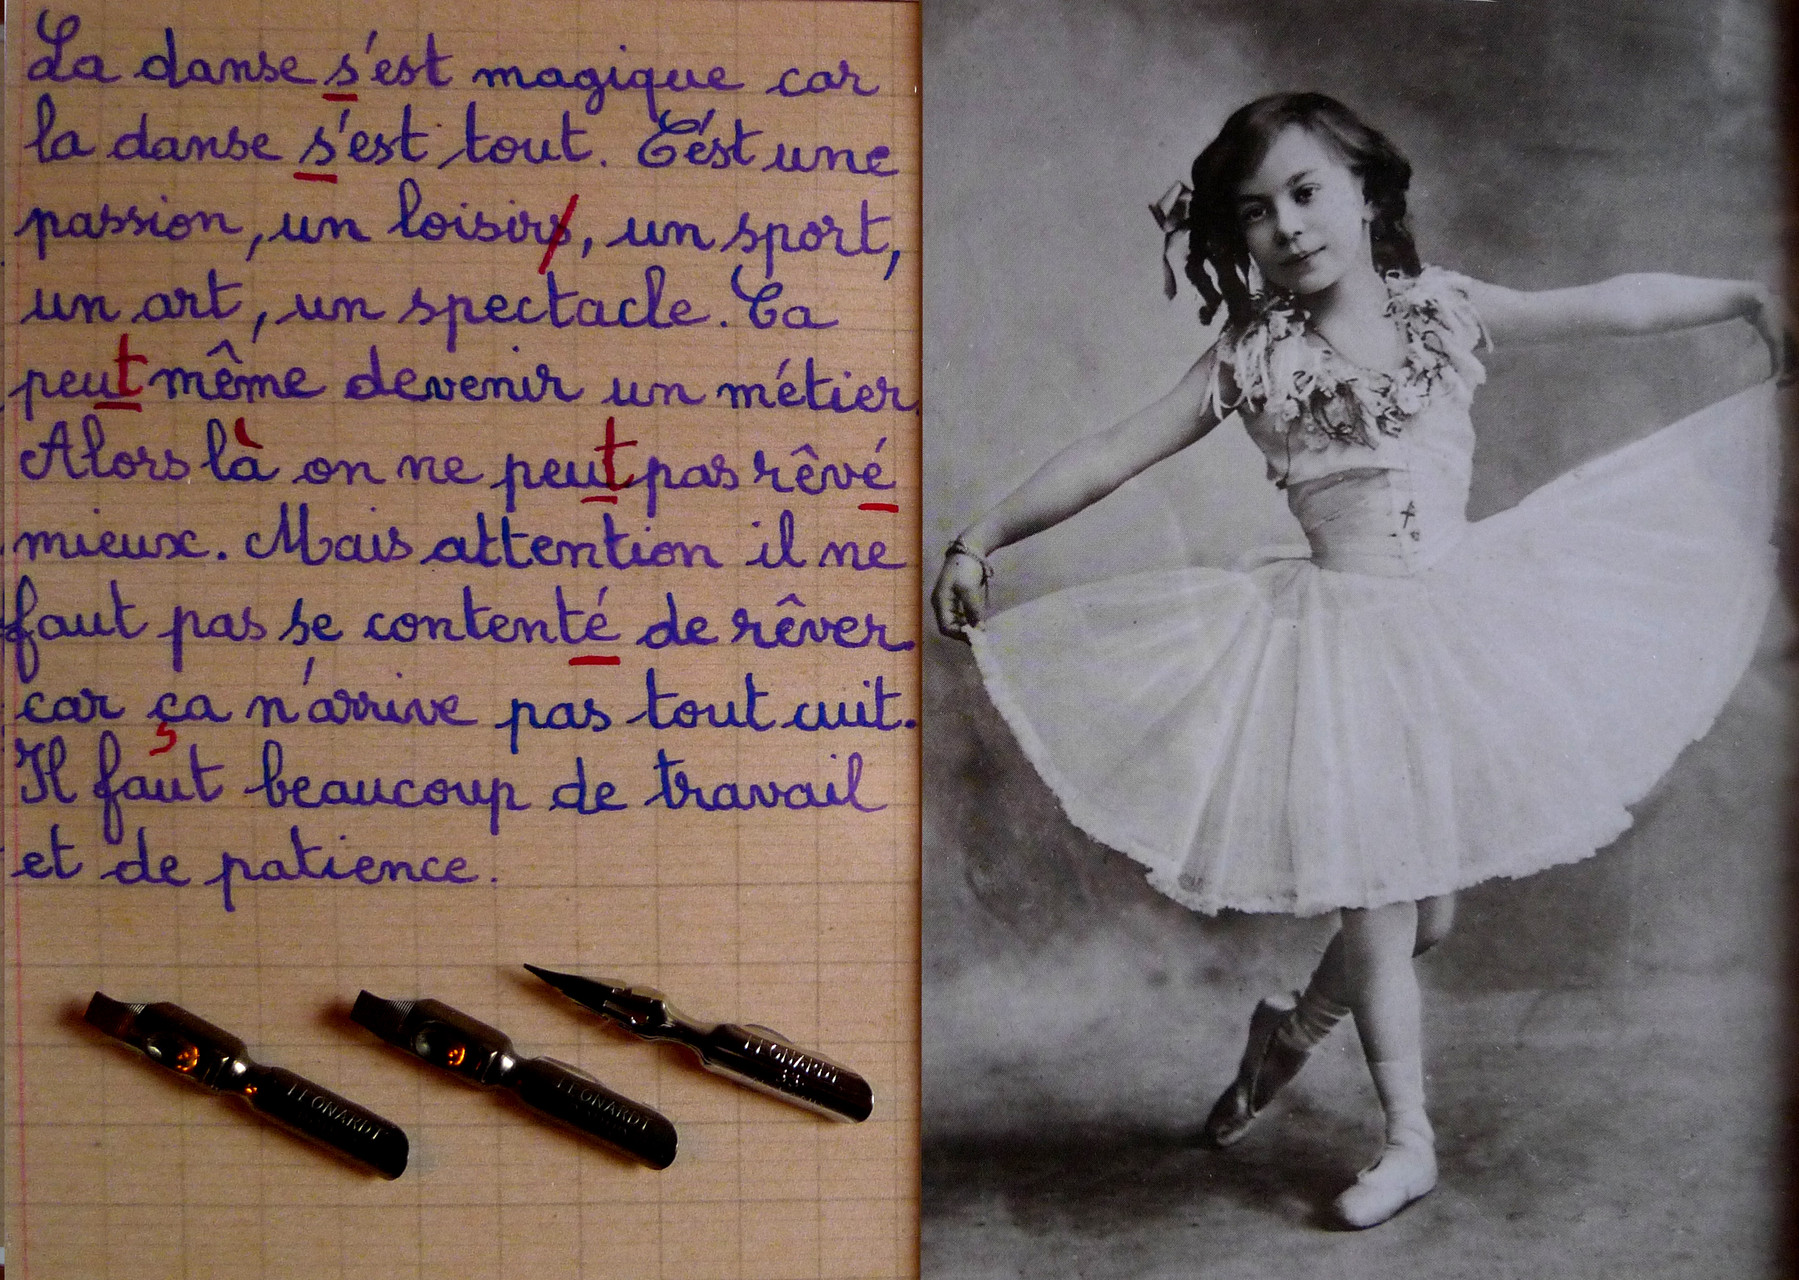 La danse s'est magique car
la danse s'est tout. C'est une
passion, un loisirs, un sport,
un art, un spectacle. Ca
peut même devenir un métier.
Alors là on ne peut pas rêvé
mieux. Mais attention il ne
faut pas se contenté de rêver.
car ça n'arrive pas tout cuit.
Il faut beaucoup de travail
et de patience.
LEONARDT
LEONARDT
LEONARDT